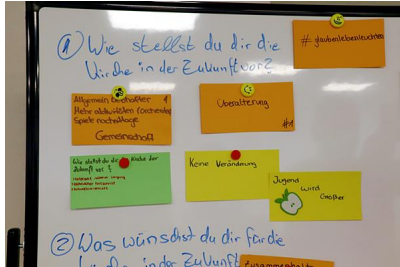 ① Wie stellst du dir die
Kirche in der Zukunft vor?
# glaubenlebenleuchten
Allgemein
1
Mehr Aktivitäten
Spielenachmittage
Gemeinschaft
Überalterung
#1
Wie stellst du dir die Kirche der
Zukunft vor?
Keine Veränderung
Jugend
wird
Größer
② Was wünschst du dir für die
Kirche in der Zukunft
Zusammenhalt